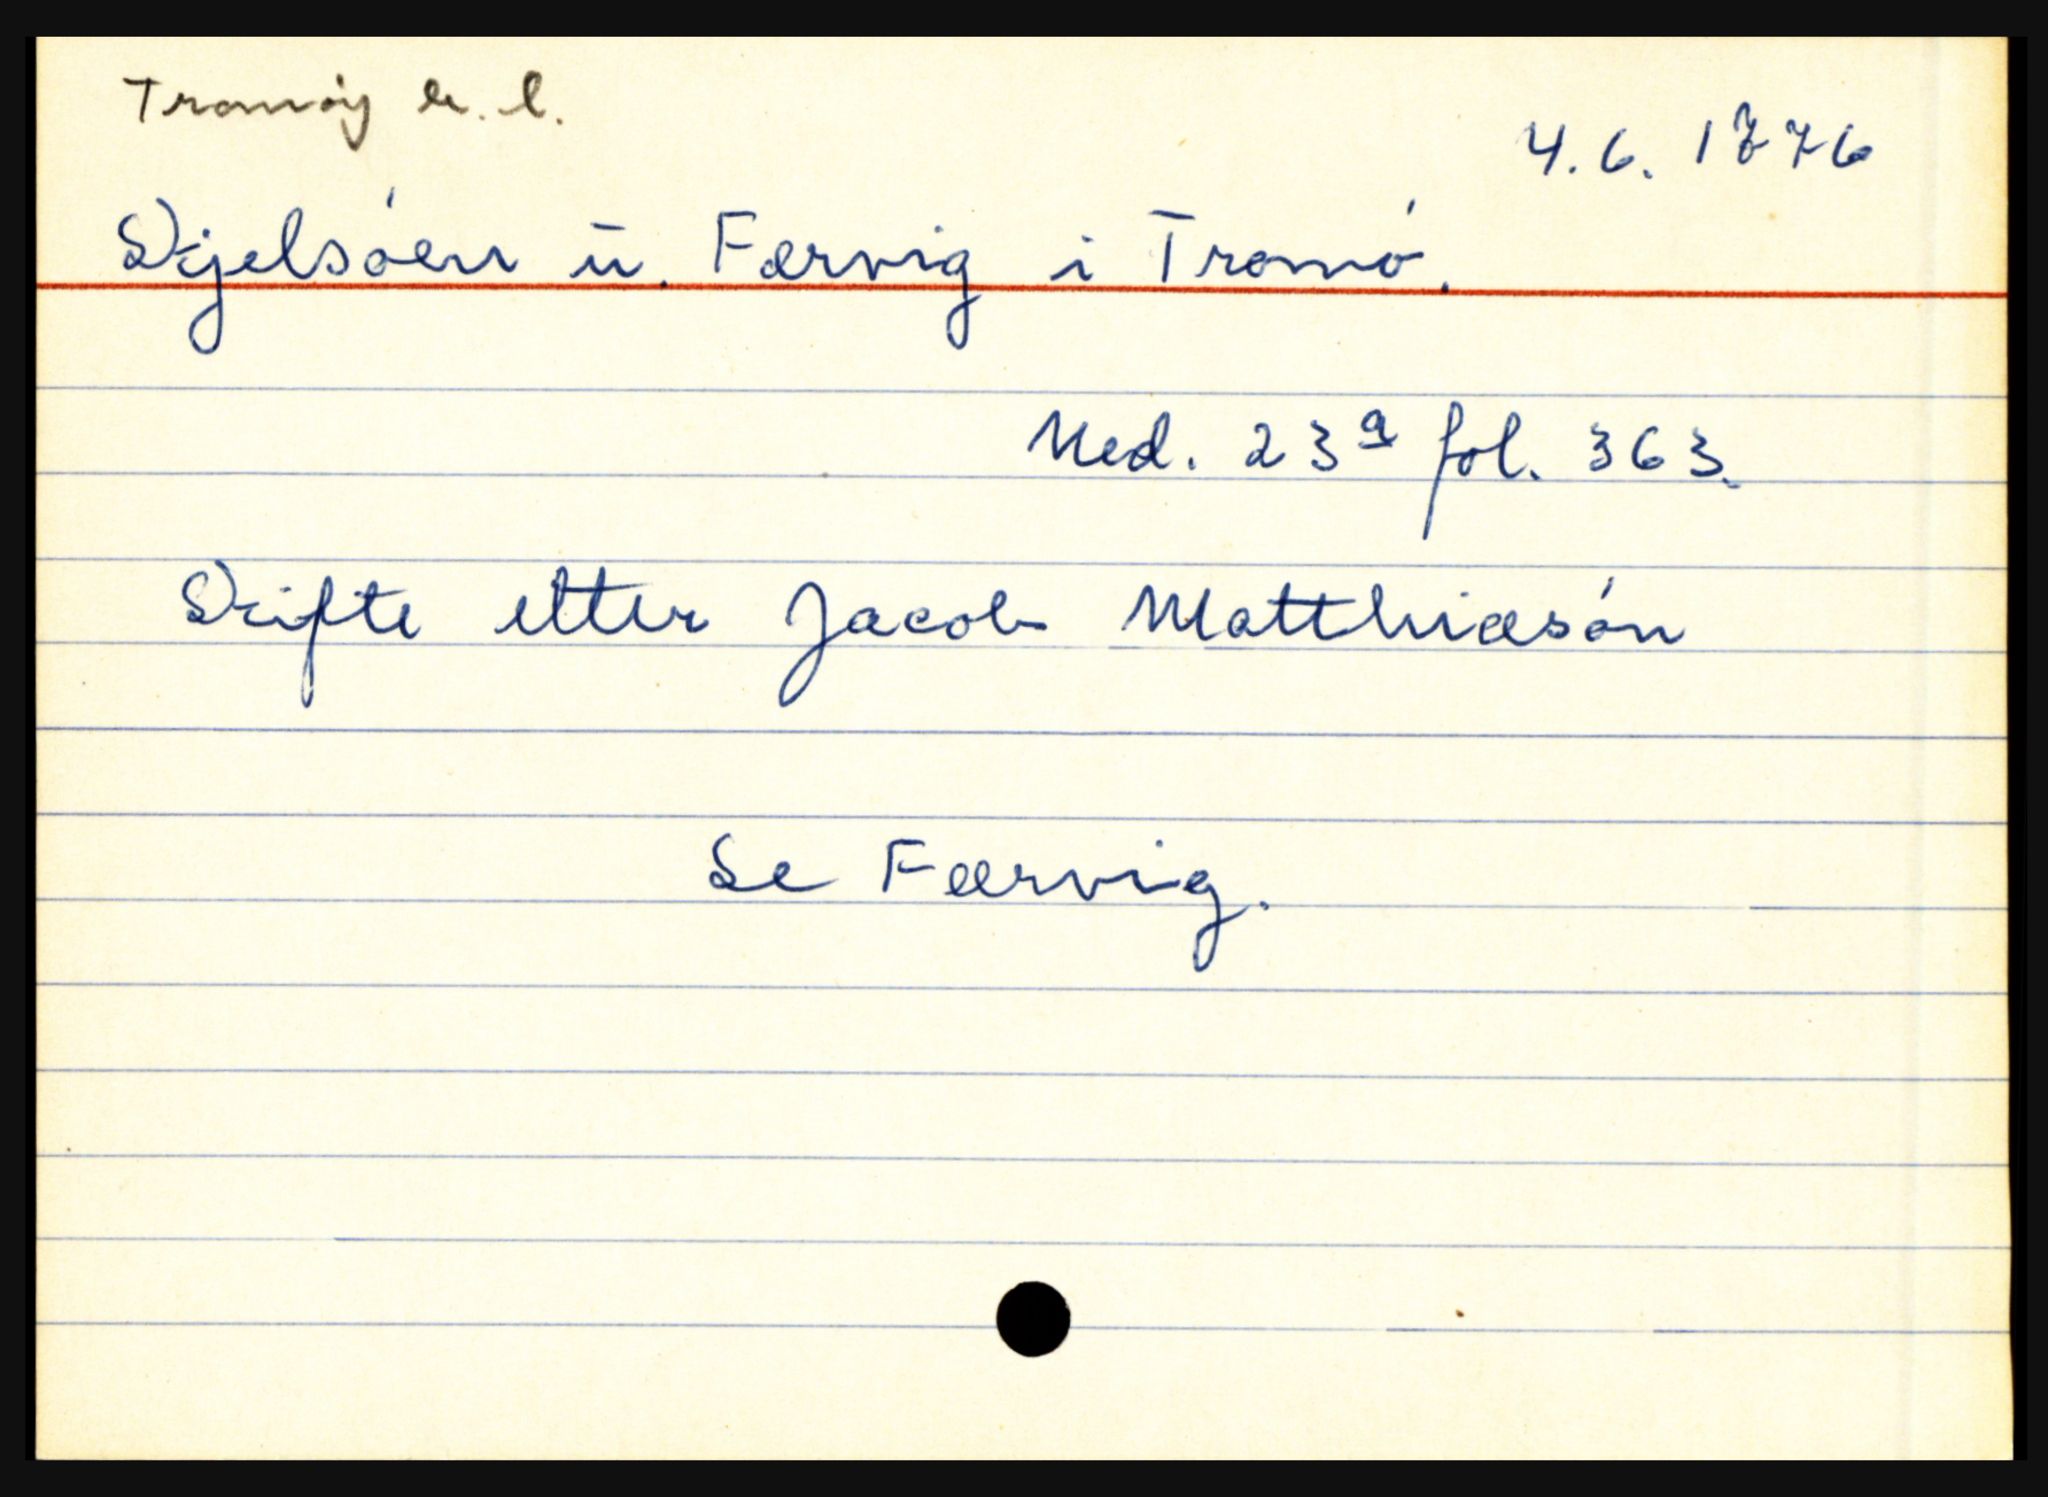 Tromøy k. l.
4.6. 1776
Skjelsøen u. Færvig i Tromø.
Ned. 23ª fol. 363.
Skifte etter Jacob Matthiæsøn
Se Færvig.